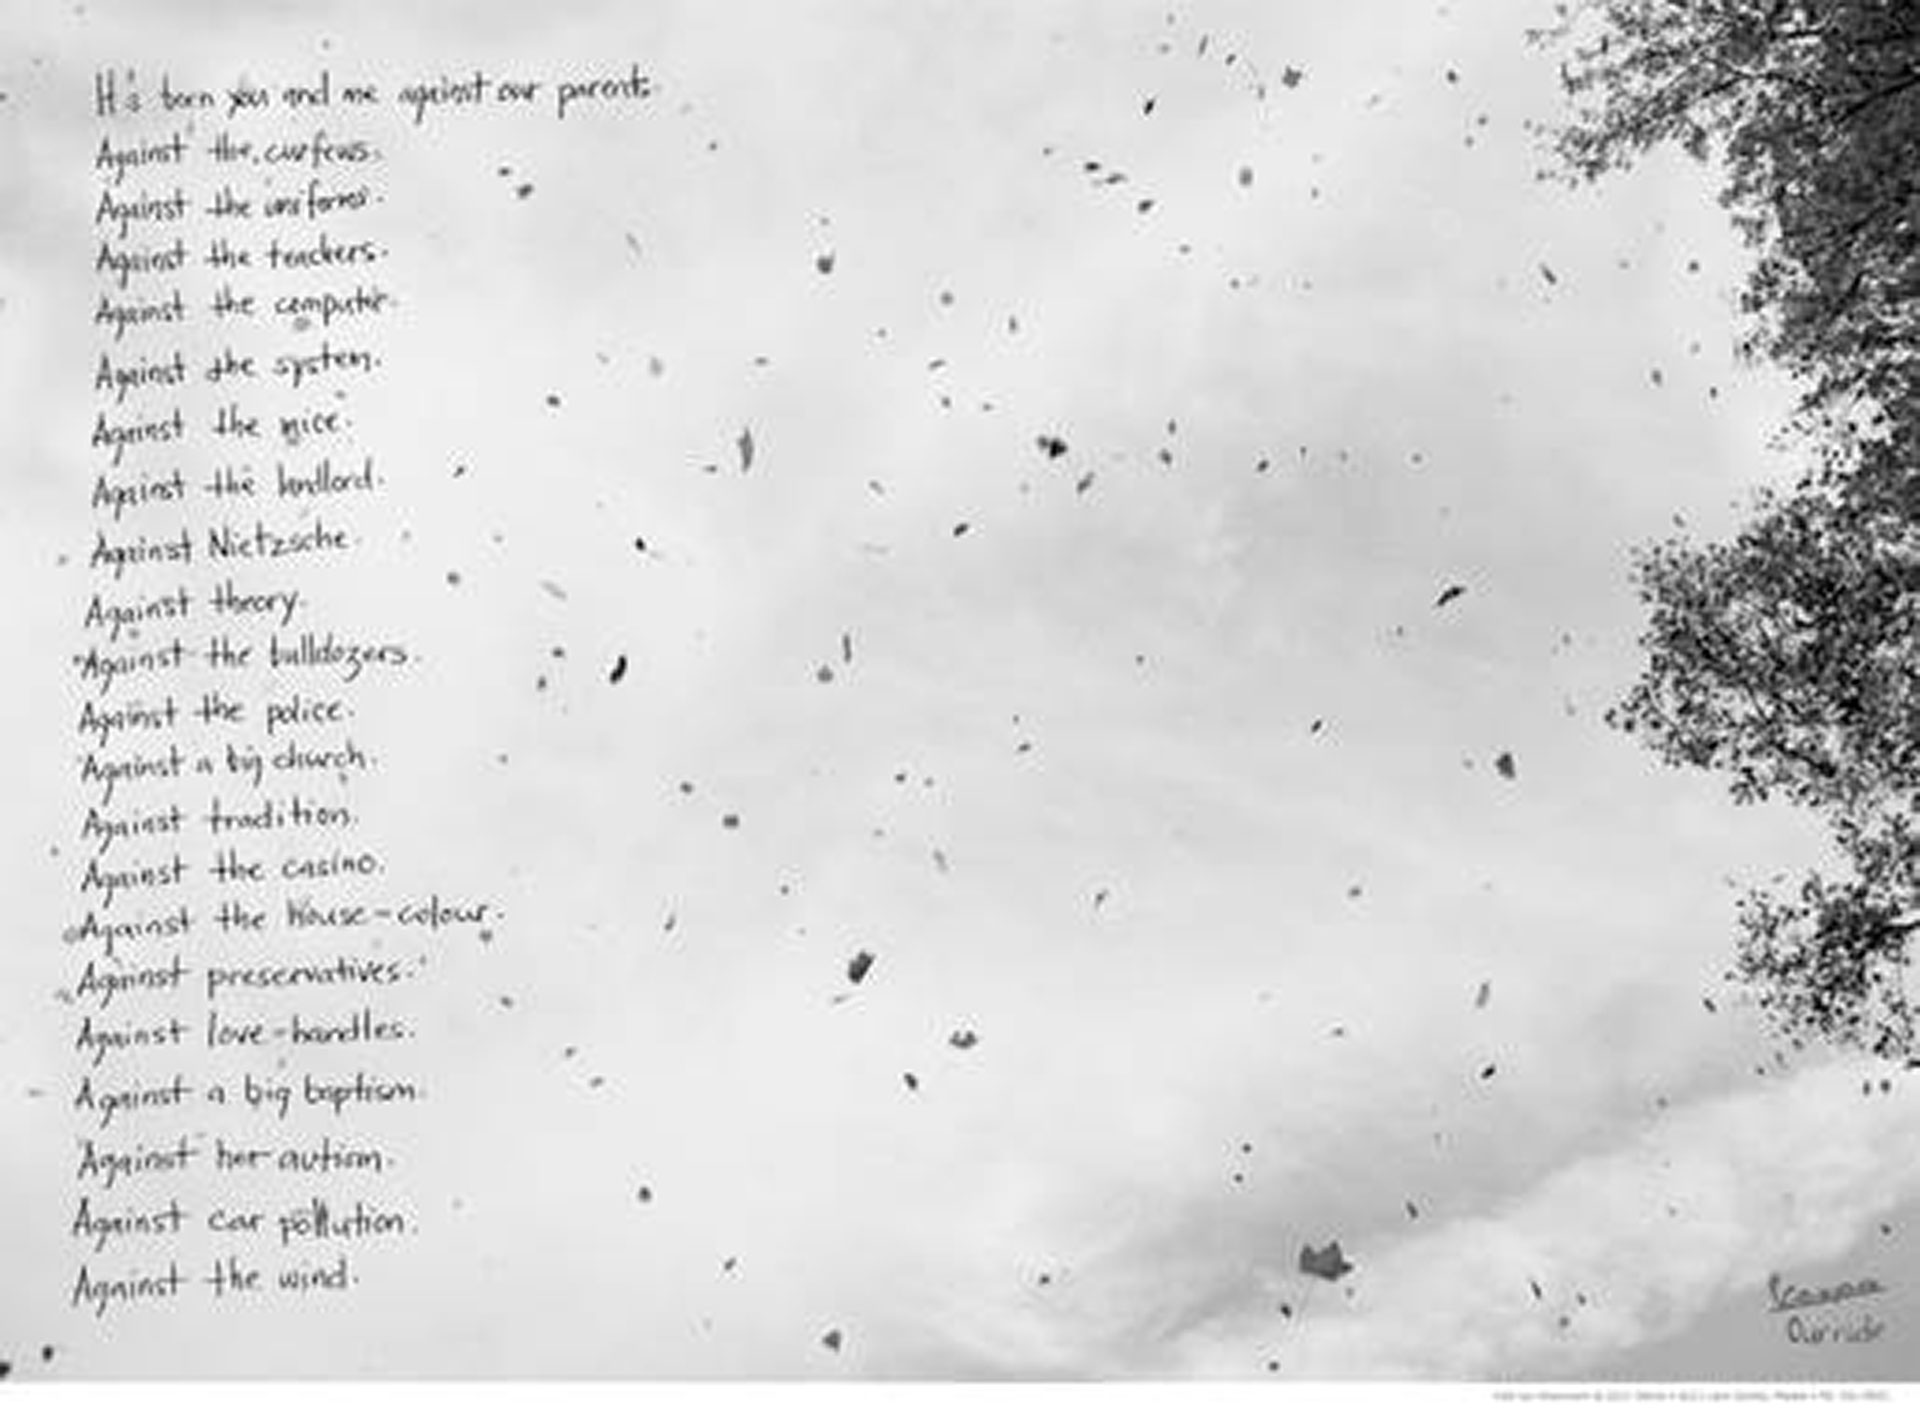 It's been you and me against our parents.
Against the curfews.
Against the uniforms.
Against the teachers.
Against the computer.
Against the system.
Against the mice.
Against the landlord.
Against Nietzsche.
Against theory.
Against the bulldozers.
Against the police.
Against a big church.
Against tradition.
Against the casino.
Against the house-colour.
Against preservatives.
Against love-handles.
Against a big baptism.
Against her autism.
Against car pollution.
Against the wind.
Our ride